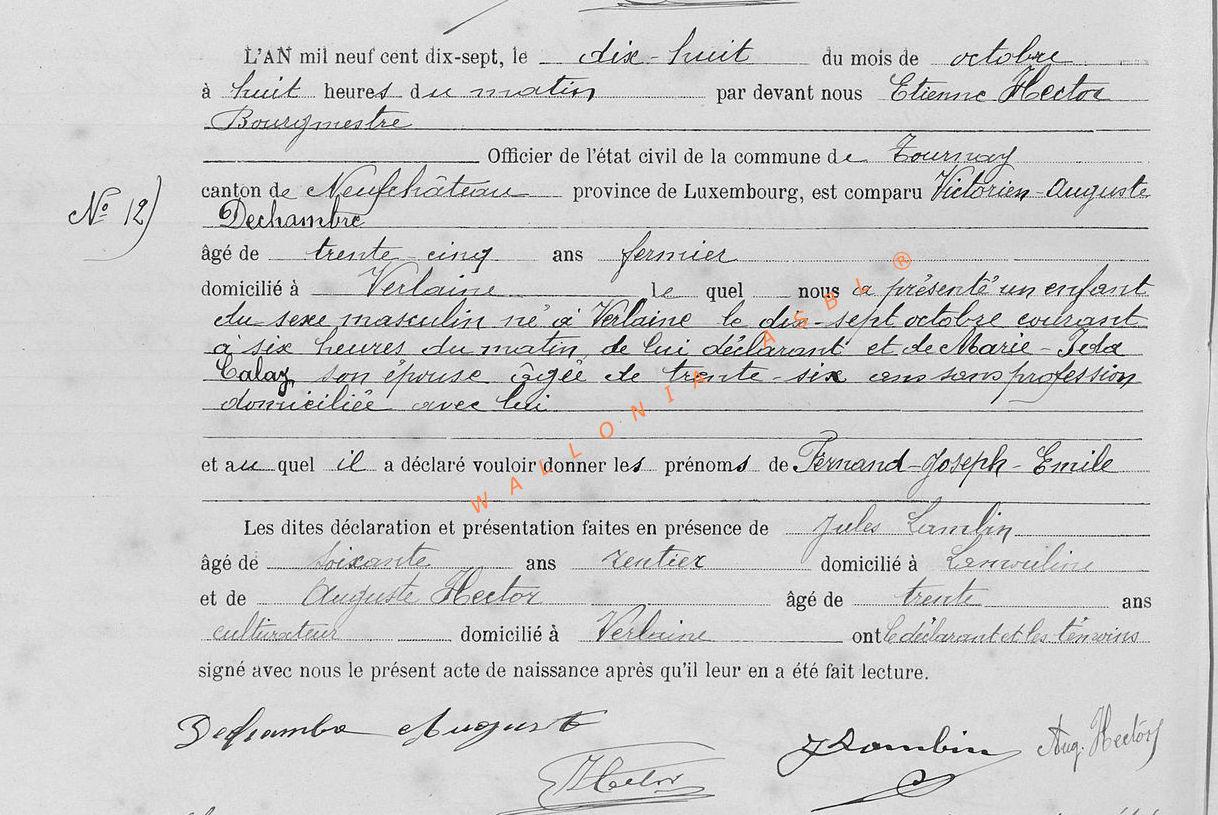 L'AN mil neuf cent dix-sept, le dix-huit du mois de octobre
à huit heures du matin par devant nous Etienne Hector
Bourgmestre
Officier de l'état civil de la commune de Tournay
N° 12) canton de Neufchâteau province de Luxembourg, est comparu Victorien-Auguste
Dechambre
âgé de trente cinq ans fermier
domicilié à Verlaine le quel nous a présenté un enfant
du sexe masculin né à Verlaine le dix-sept octobre courant
à six heures du matin, de lui déclarant et de Marie-Ida
Calay son épouse âgée de trente-six ans sans profession
domiciliée avec lui
et au quel il a déclaré vouloir donner les prénoms de Fernand-Joseph-Emile
Les dites déclaration et présentation faites en présence de Jules Lambin
âgé de soixante ans rentier domicilié à Lamouline
et de Auguste Hector âgé de trente ans
cultivateur domicilié à Verlaine ont le déclarant et les témoins
signé avec nous le présent acte de naissance après qu'il leur en a été fait lecture.
Dechambre Auguste
J Lambin Aug. Hector
E Hector
WALLONIA ASBL ®